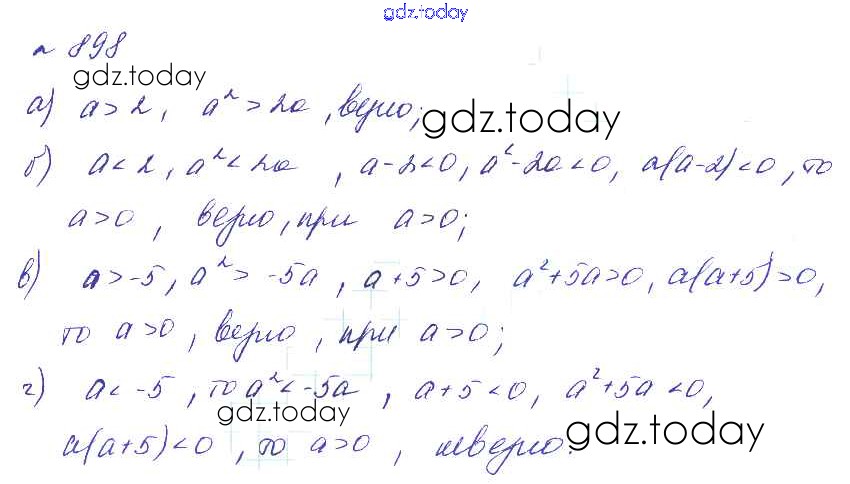 gdz.today
№ 898
gdz.today
а) a>2, a²>2a, верно; gdz.today
б) a<2, a²<2a, a-2<0, a²-2a<0, a(a-2)<0, то
a>0, верно, при a>0;
в) a>-5, a²>-5a, a+5>0, a²+5a>0, a(a+5)>0,
то a>0, верно, при a>0;
г) a<-5, то a²<-5a, a+5<0, a²+5a<0,
gdz.today
a(a+5)<0, то a>0, неверно. gdz.today